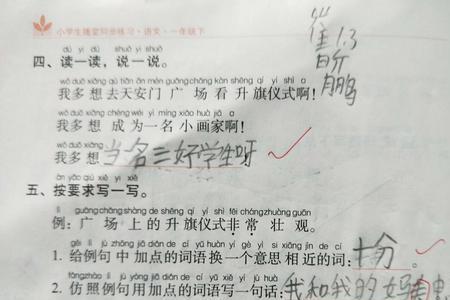 小学生随堂同步练习·语文·一年级下
dú yi dú shuō yi shuō
四、读一读，说一说。
wǒ duō xiǎng qù tiān ān mén guǎng chǎng kàn shēng qí yí shì a
我多想去天安门广场看升旗仪式啊！
wǒ duō xiǎng chéng wéi yì míng xiǎo huà jiā a
我多想成为一名小画家啊！
wǒ duō xiǎng
我多想当名三好学生呀
àn yāo qiú xiě yi xiě
五、按要求写一写。
lì guǎng chǎng shàng de shēng qí yí shì fēi cháng zhuàng guān
例：广场上的升旗仪式非常壮观。
gěi lì jù zhōng jiā diǎn de cí yǔ huàn yí gè yì si xiāng jìn de cí
1. 给例句中加点的词语换一个意思相近的词：十分。
fǎng zhào lì jù yòng jiā diǎn de cí yǔ xiě yí jù huà
2. 仿照例句用加点的词语写一句话：我和我的妈
1.3
鹏